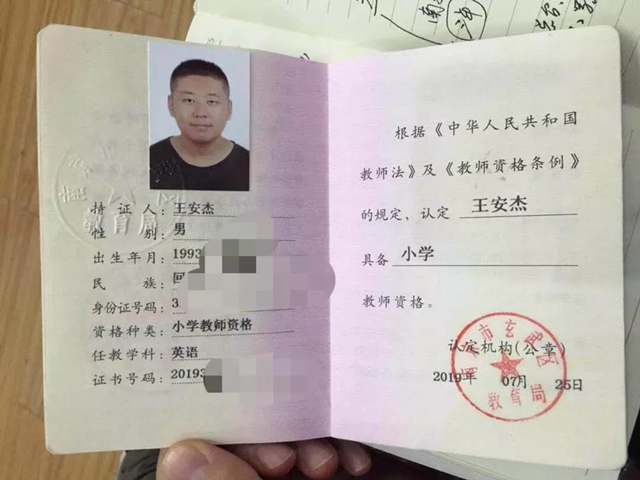 持证人：王安杰
性别：男
出生年月：1993
民族：回
身份证号码：3
资格种类：小学教师资格
任教学科：英语
证书号码：20193
教育局
根据《中华人民共和国
教师法》及《教师资格条例》
的规定，认定 王安杰
具备 小学
教师资格。
认定机构(公章)
2019年 07月 25日
市玄武区
教育局